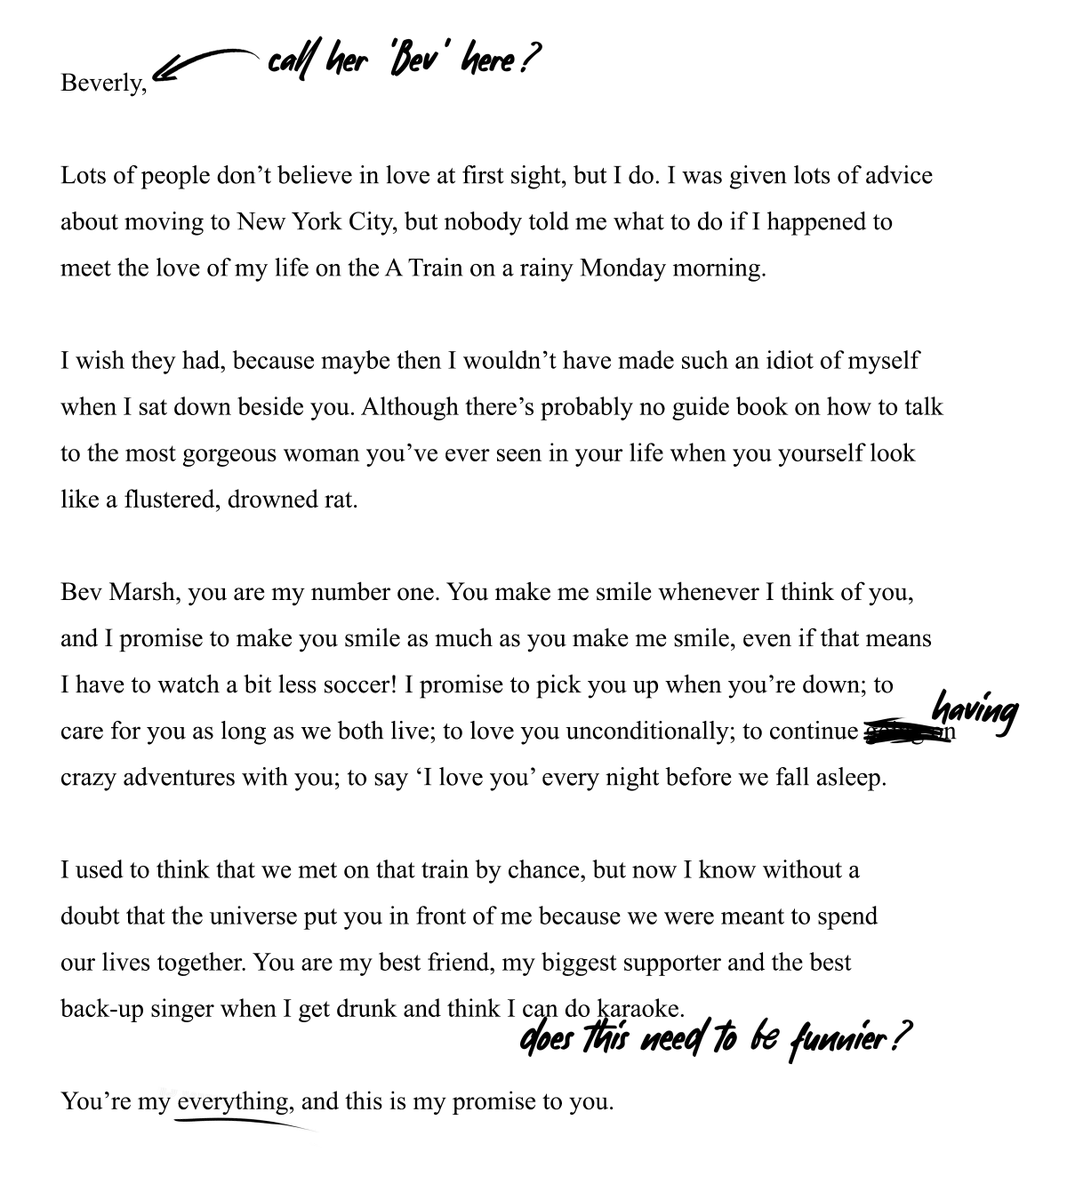 call her 'Bev' here?
Beverly,
Lots of people don’t believe in love at first sight, but I do. I was given lots of advice
about moving to New York City, but nobody told me what to do if I happened to
meet the love of my life on the A Train on a rainy Monday morning.
I wish they had, because maybe then I wouldn’t have made such an idiot of myself
when I sat down beside you. Although there’s probably no guide book on how to talk
to the most gorgeous woman you’ve ever seen in your life when you yourself look
like a flustered, drowned rat.
Bev Marsh, you are my number one. You make me smile whenever I think of you,
and I promise to make you smile as much as you make me smile, even if that means
I have to watch a bit less soccer! I promise to pick you up when you’re down; to
having
care for you as long as we both live; to love you unconditionally; to continue
crazy adventures with you; to say ‘I love you’ every night before we fall asleep.
I used to think that we met on that train by chance, but now I know without a
doubt that the universe put you in front of me because we were meant to spend
our lives together. You are my best friend, my biggest supporter and the best
back-up singer when I get drunk and think I can do karaoke.
does this need to be funnier?
You’re my everything, and this is my promise to you.